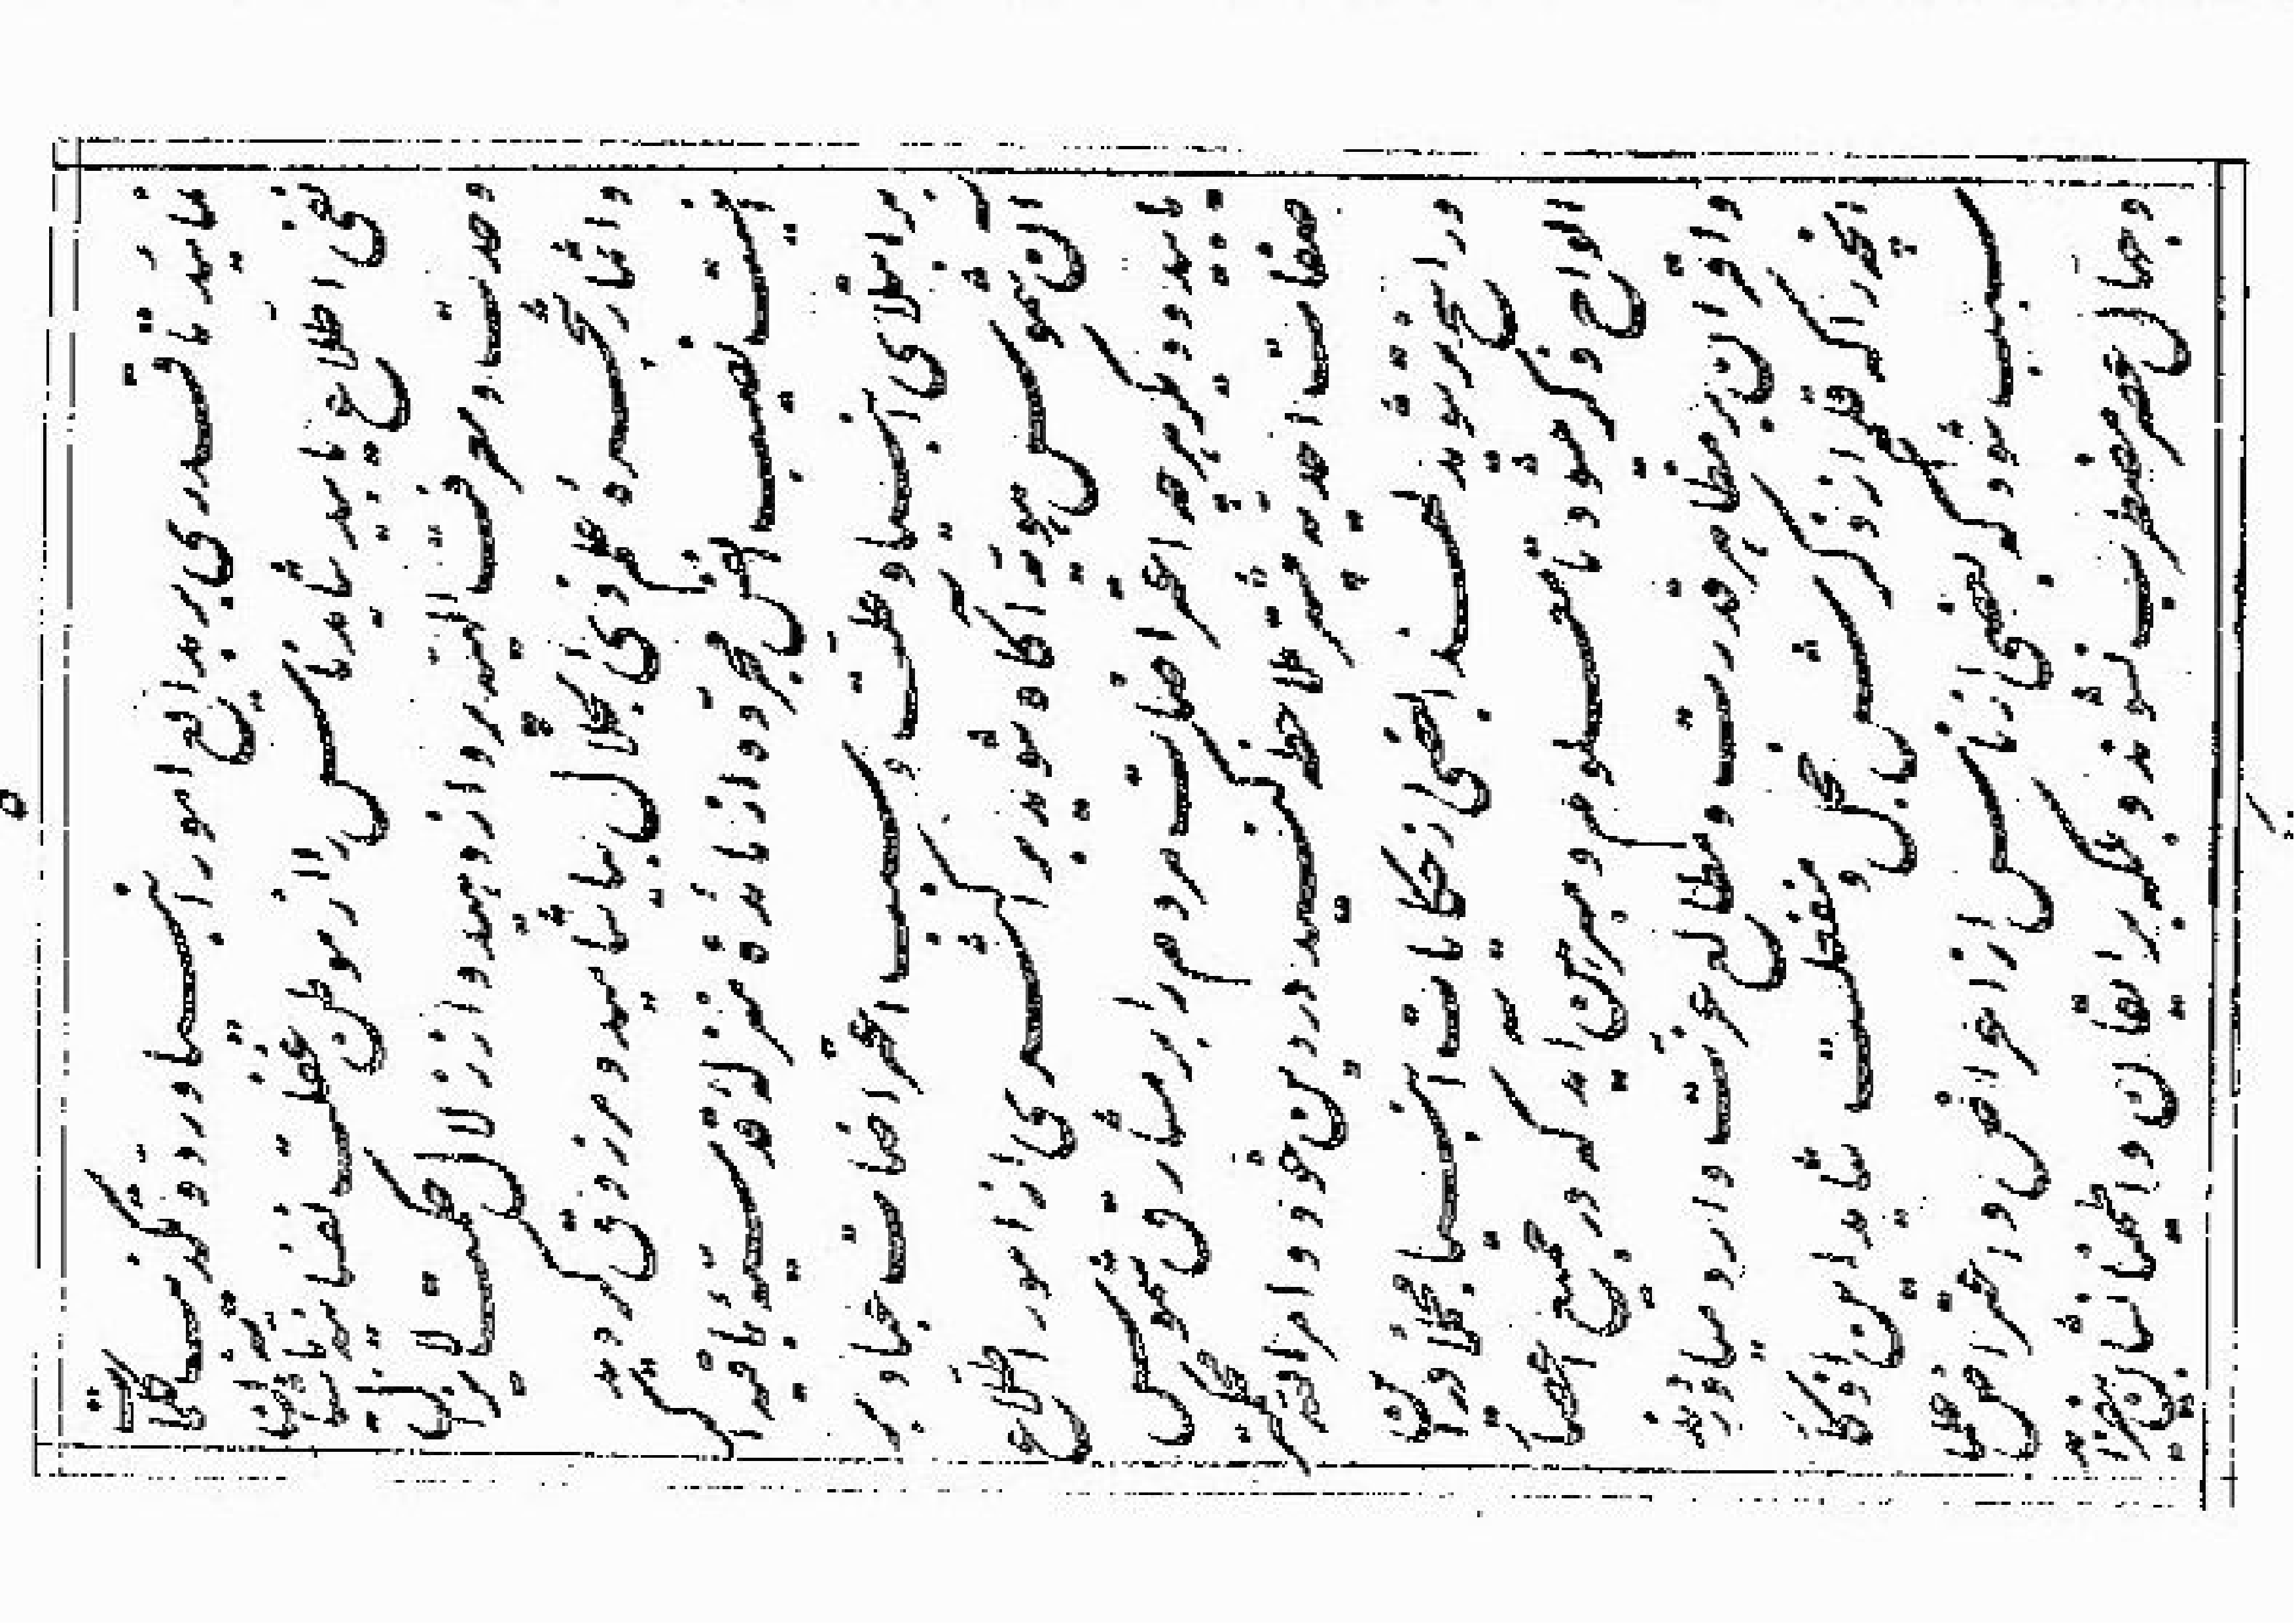 باشد تا قدری بر بدایع امور انبیا و رد و تکذیب کلمات
نفی اطلاع یابید شاید ناس را از موطن غفلت نفسانیه باشیان
وحدت و معرفت الهیه پرواز دهید و از زلال حکمت لا یزال
و اثمار شجره علم ذی الجلال بیاشامید و مرزوق گردید
اینست نصیب انفس مجرده از مائده منزله قدسیه باقیه اگر
بر ابتلای انبیا و علت و سبب اعتراضات عباد بر
ان شموس هویه اگاه شوید بر اکثری از امور اطلاع
یابید و دیگر هر چه اعتراضات مردم را بر مشارق شموس
صفات احدیه بیشتر ملاحظه کنید در دین خود و امر الله محکمتر
و راسختر شوید لهذا بعضی از حکایات انبیا مجملا در این
الواح ذکر میشود تا معلوم و مبرهن اید که در جمیع اعصار
و اوقات بر مظاهر قدرت و مطالع عزت وارد میاوردند
انچه را که قلم از ذکرش خجل و منفعل است شاید این اذکار
سبب شود که بعضی از ناس از اعراض و اعتراض علما
و جهال عصر مضطرب نشوند و بلکه بر ایقان و اطمینانشان بیفزاید